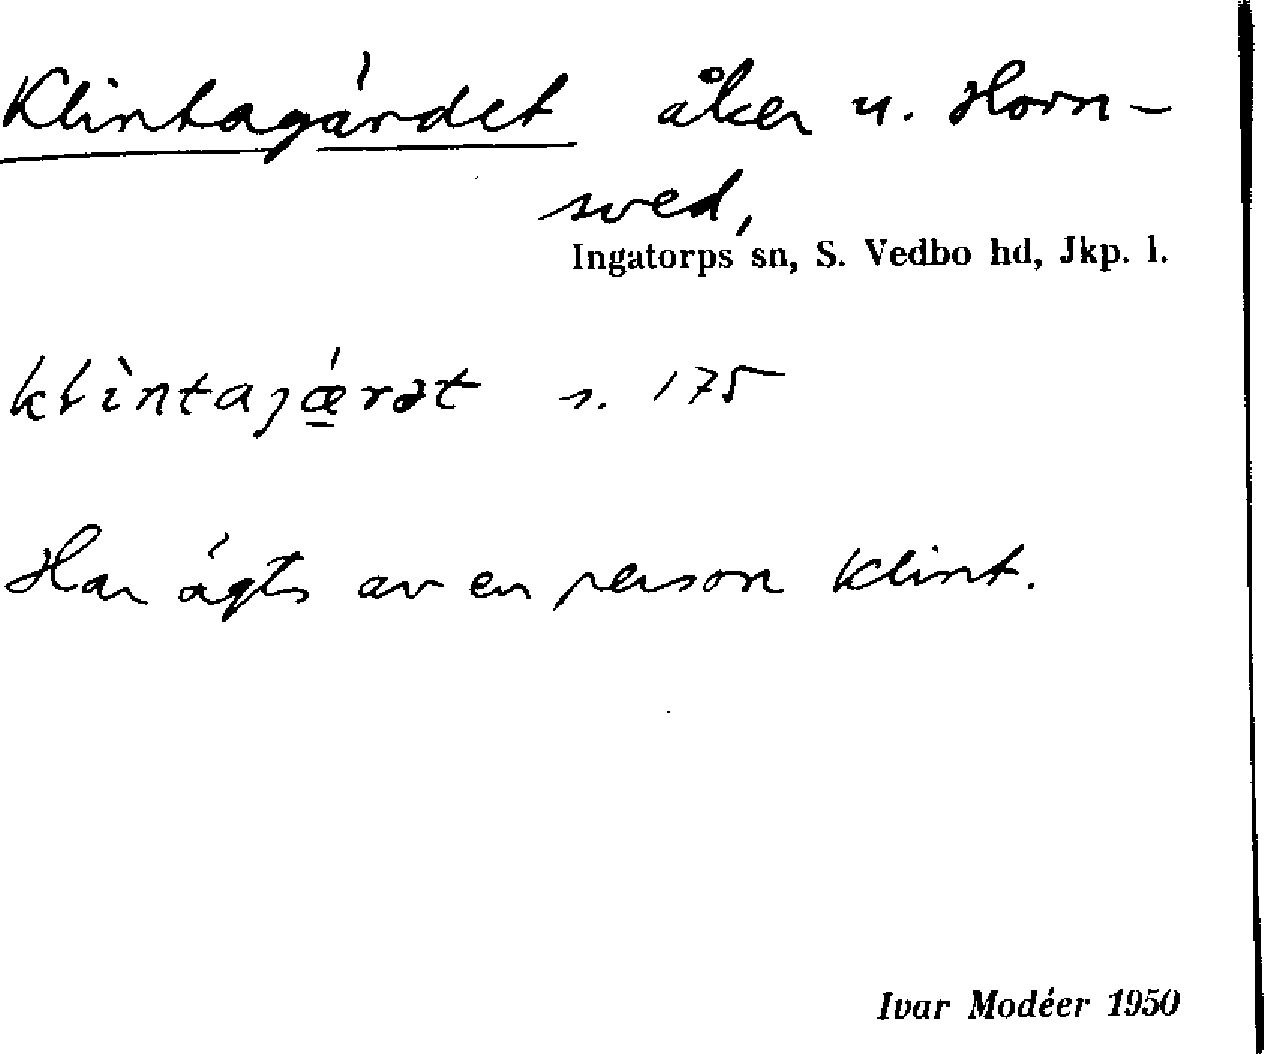 Klintagärdet åker u. Horn-
sved,
Ingatorps sn, S. Vedbo hd, Jkp. l.
klìntajǽ̠rət s. 175
Har ägts av en person Klint.
Ivar Modéer 1950